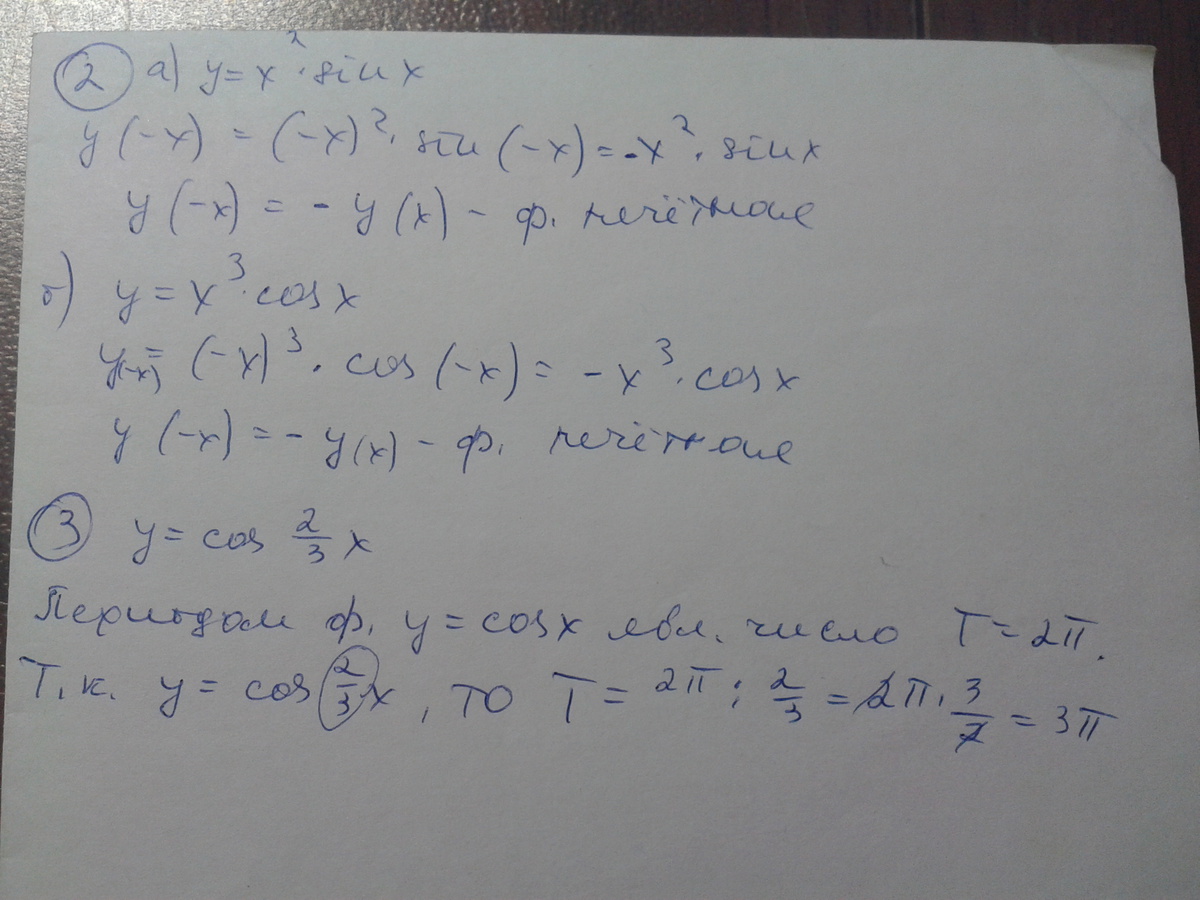 2 а) y = x² · sin x
y(-x) = (-x)² · sin(-x) = -x² · sin x
y(-x) = - y(x) - ф. нечётная
б) y = x³ · cos x
y(-x) = (-x)³ · cos(-x) = - x³ · cos x
y(-x) = - y(x) - ф. нечётная
3 y = cos 2/3 x
Периодом ф. y = cos x явл. число T = 2π.
Т.к. y = cos 2/3 x, то T = 2π : 2/3 = 2π · 3/2 = 3π